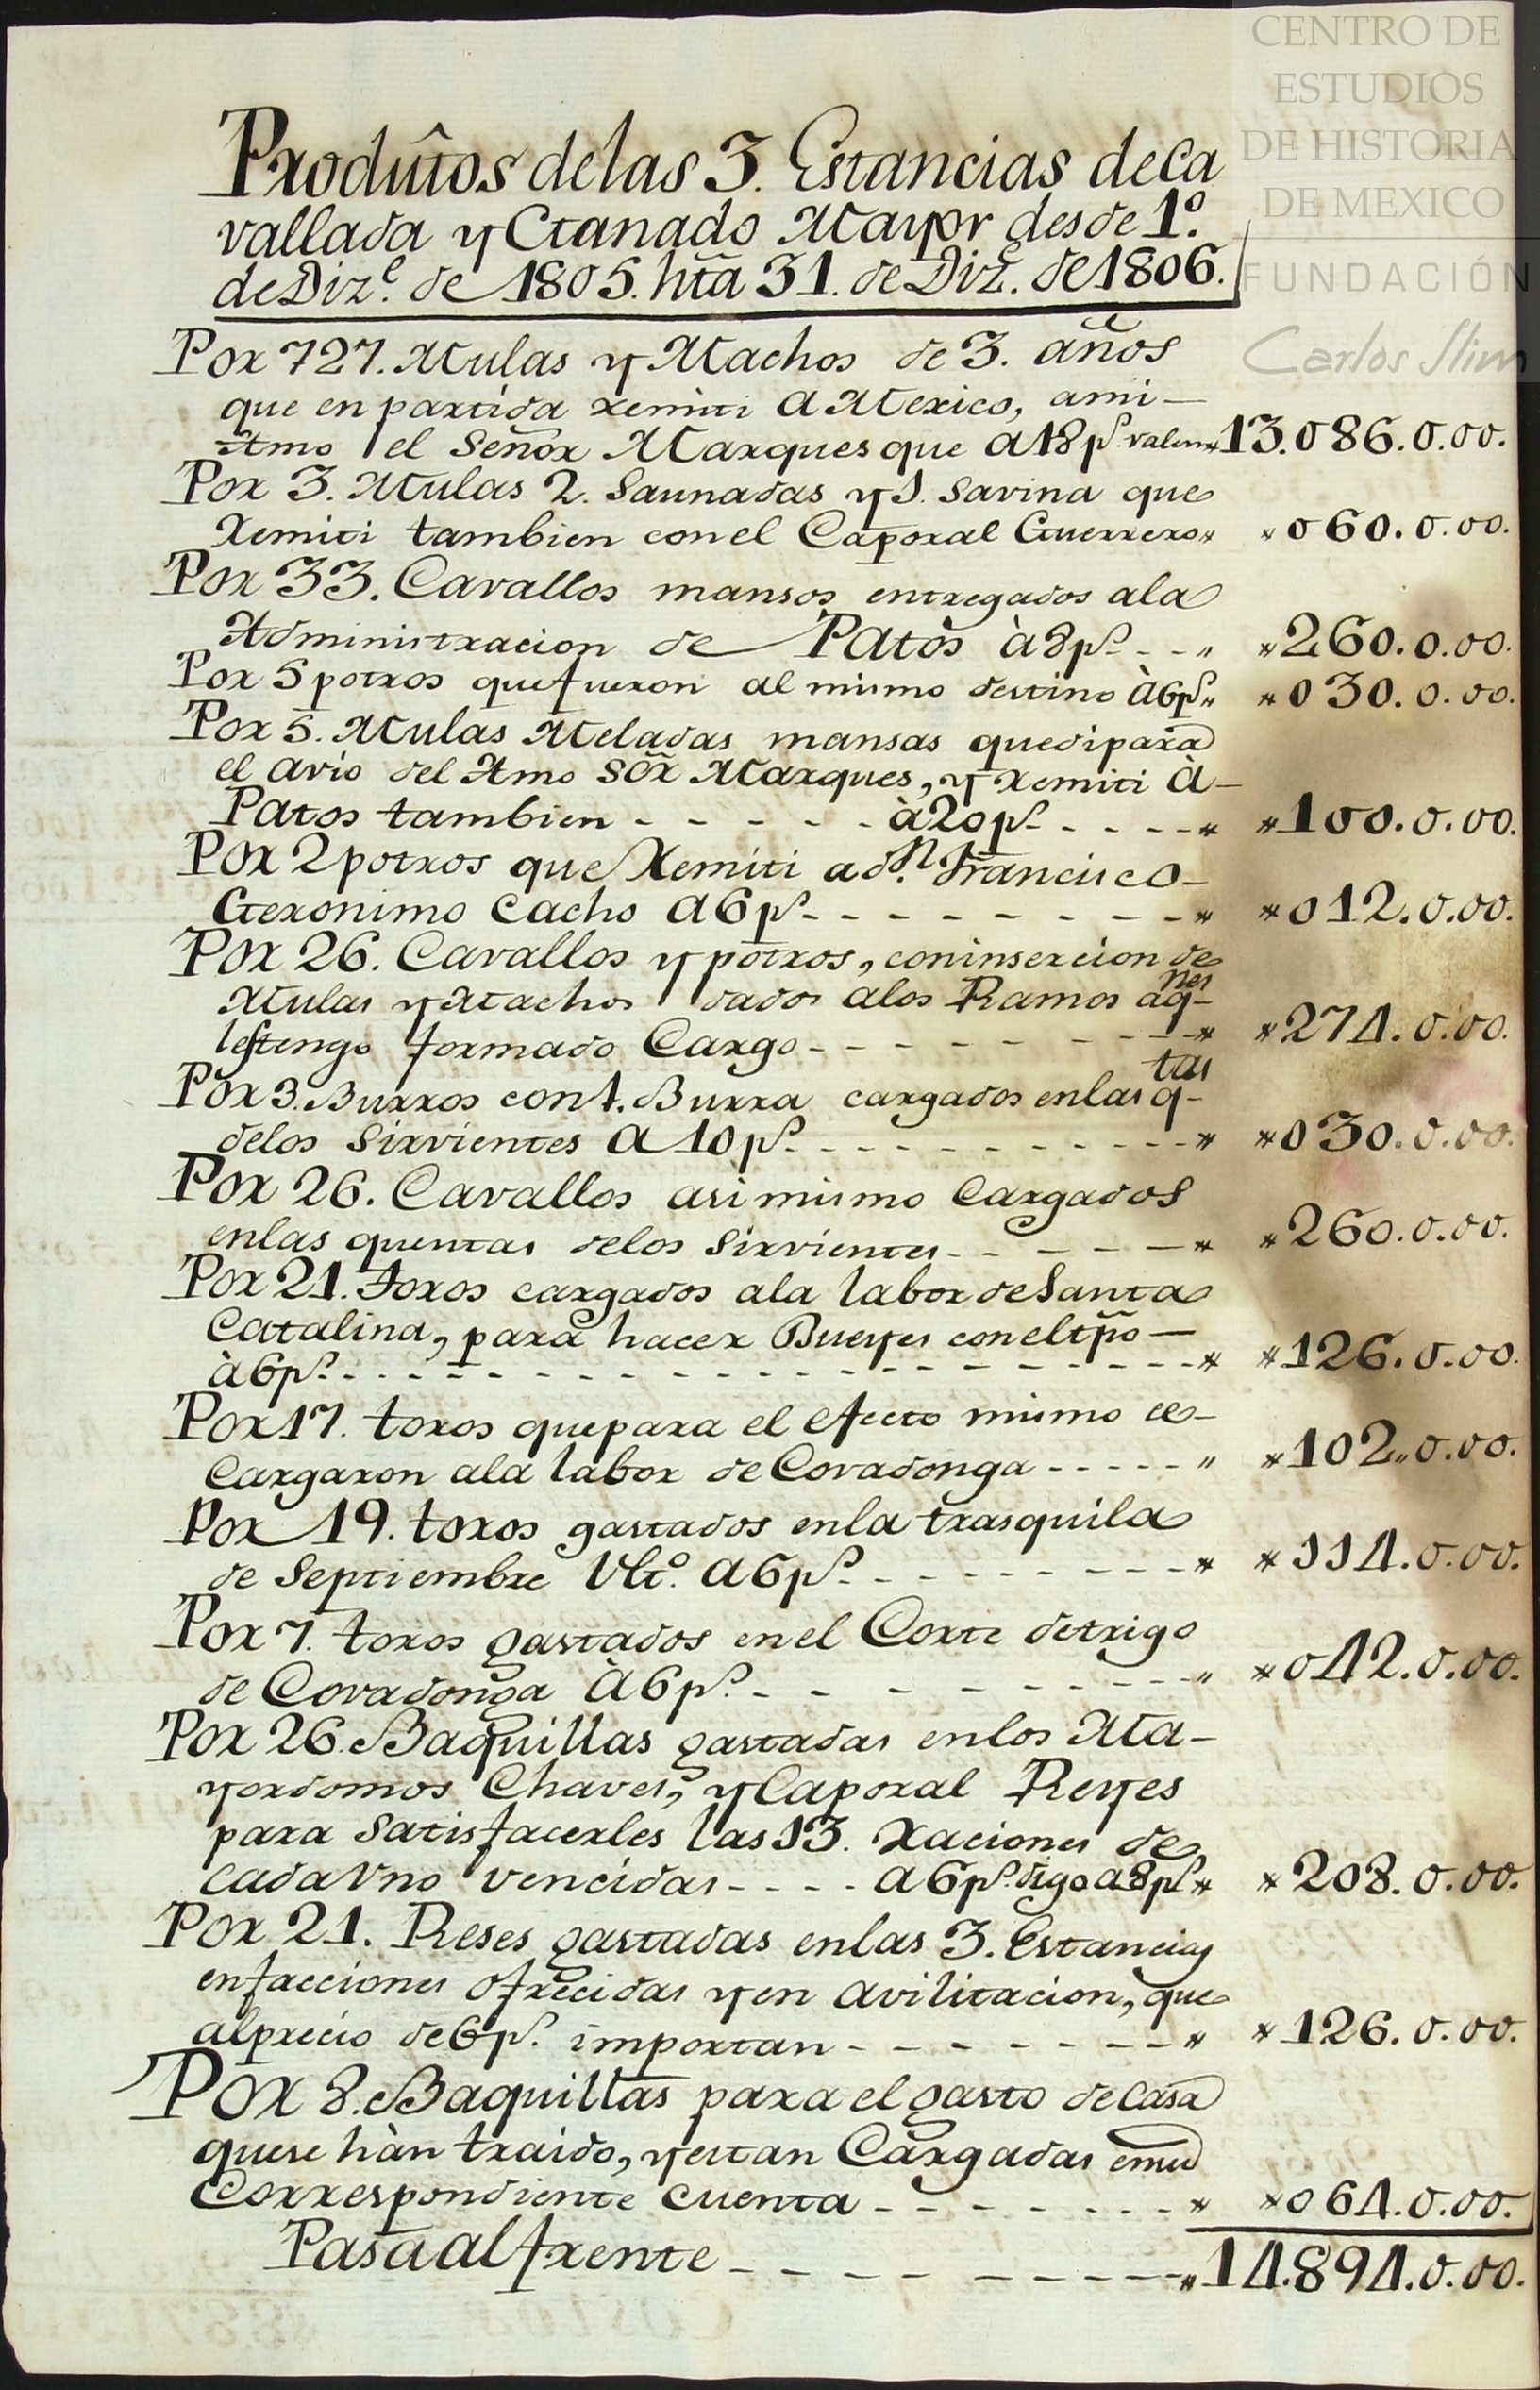 CENTRO DE
ESTUDIOS
DE HISTORIA
DE MEXICO
FUNDACIÓN
Carlos Slim
Produ͡tos delas 3. Estancias de Ca
vallada y Ganado Mayor desde 1º.
de Dizᵉ. de 1805. htã 31. de Dizᵉ. de 1806.
Por 727. Mulas y Machos de 3. años
que en partida remiti a Mexico, ami-
Amo el Señor Marques que a 18 pˢ. valen " 13.086.0.00.
Por 3. Mulas 2. Saunadas y 1. Savina que
Remiti tambien con el Caporal Guerrero " " 060.0.00.
Por 33. Cavallos mansos entregados ala
Administracion de Patos à 8 pˢ. - - " " 260.0.00.
Por 5 potros que fueron al mismo destino à 6 pˢ. " " 030.0.00.
Por 5. Mulas Meladas mansas quedi para
el avio del Amo Sõr Marques, y remiti à-
Patos tambien - - - - - - à 20 pˢ. - - - - " " 100.0.00.
Por 2 potros que Remiti a dⁿ. Francisco-
Geronimo Cacho a 6 pˢ. - - - - - - - - - " " 012.0.00.
Por 26. Cavallos y potros, con insercion de
Mulas y Machos dados alos Ramos aqⁿᵉˢ-
lestengo formado Cargo - - - - - - - - - " " 274.0.00.
Por 3. Burros con 1. Burra cargados enlas qᵗᵃˢ-
delos Sirvientes a 10 pˢ. - - - - - - - - - - " " 030.0.00.
Por 26. Cavallos asimismo Cargados
enlas quentas delos Sirvientes - - - - - - " " 260.0.00.
Por 21. Toros cargados ala labor de Santa
Catalina, para hacer Bueyes con el tpõ-
à 6 pˢ. - - - - - - - - - - - - - - - - - " " 126.0.00.
Por 17. toros que para el efecto mismo se-
Cargaron ala labor de Covadonga - - - - - " " 102"0.00.
Por 19. toros gastados enla trasquila
de Septiembre Ultº. a 6 pˢ. - - - - - - - - - " " 114.0.00.
Por 7. toros gastados en el Corte detrigo
de Covadonga à 6 pˢ. - - - - - - - - - - " " 042.0.00.
Por 26. Baquillas gastadas enlos Ma-
yordomos Chaves, y Caporal Reyes
para Satisfacerles las 13. Raciones de
cada Vno vencidas - - - - a 6 pˢ. digo a 8 pˢ. " " 208.0.00.
Por 21. Reses gastadas enlas 3. Estancias
enfacciones ofrecidas y en avilitacion, que
alprecio de 6 pˢ. importan - - - - - - - - " " 126.0.00.
Por 8. Baquillas para el gasto de Casa
quese hàn traido, yestan Cargadas ensu
Correspondiente cuenta - - - - - - - - " " 064.0.00.
Pasa al frente - - - - - - - - - - " 14.894.0.00.